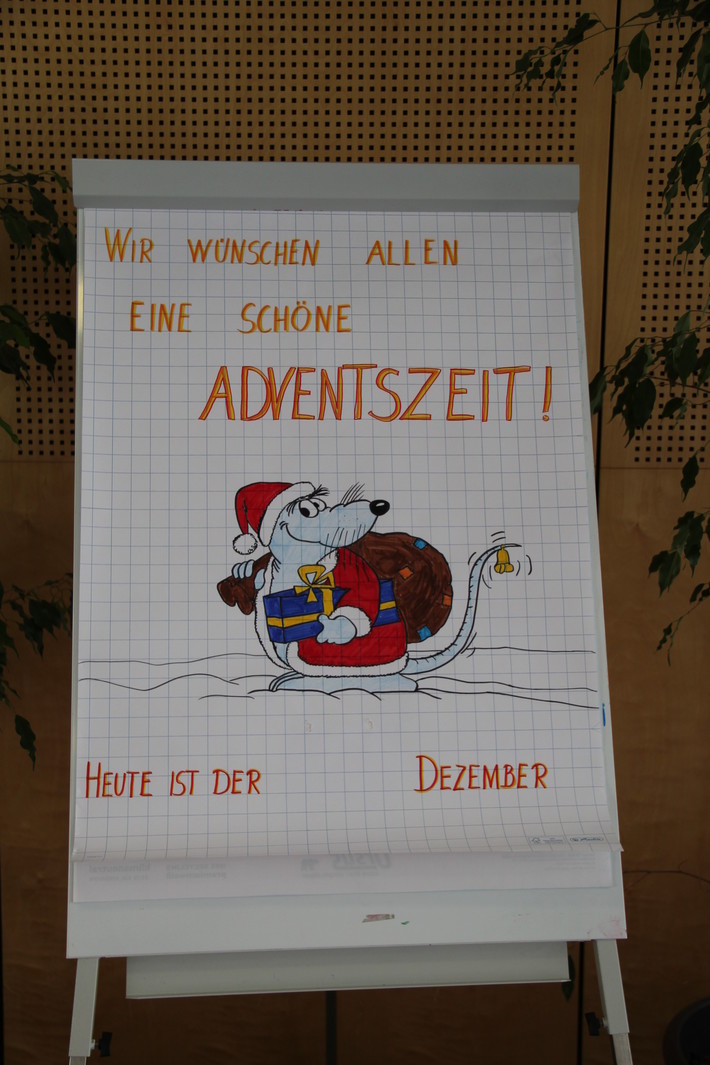 WIR WÜNSCHEN ALLEN
EINE SCHÖNE
ADVENTSZEIT!
HEUTE IST DER DEZEMBER